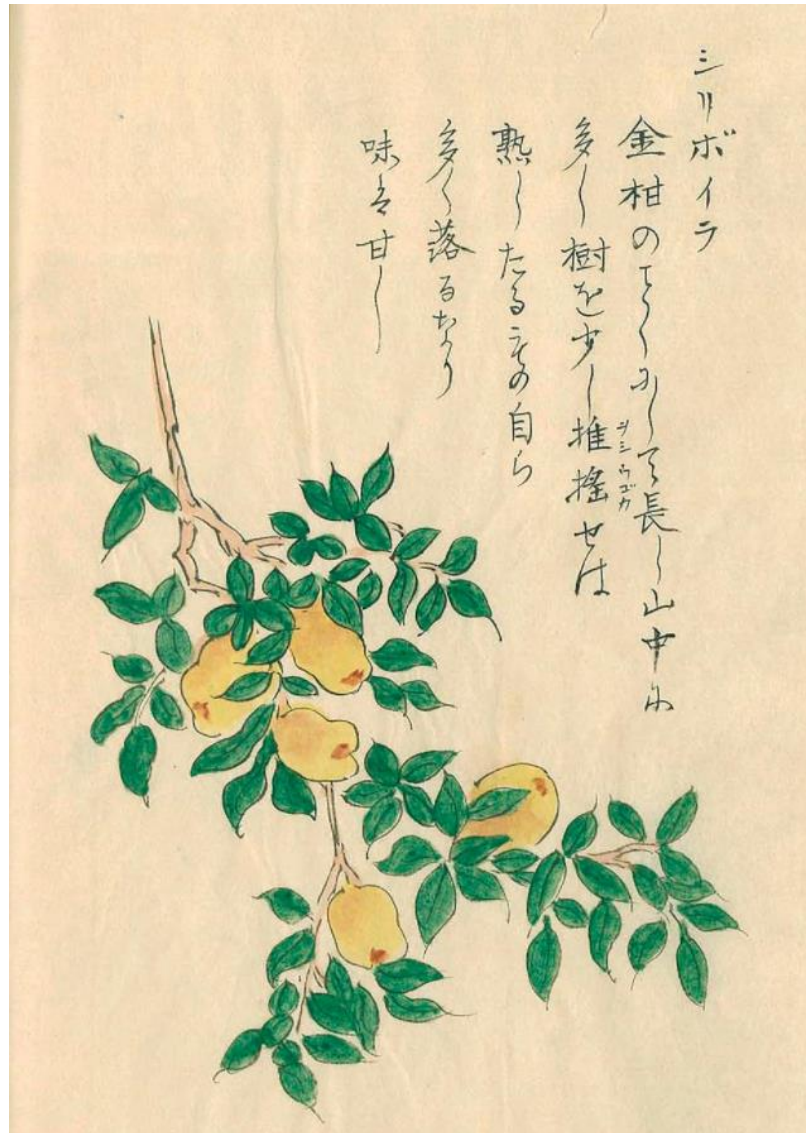 シリボイラ
金柑のことくにして長し山中に
多し樹を少し推揺せは
ヲシウゴカ
熟したるもの自ら
多く落るなり
味は甘し